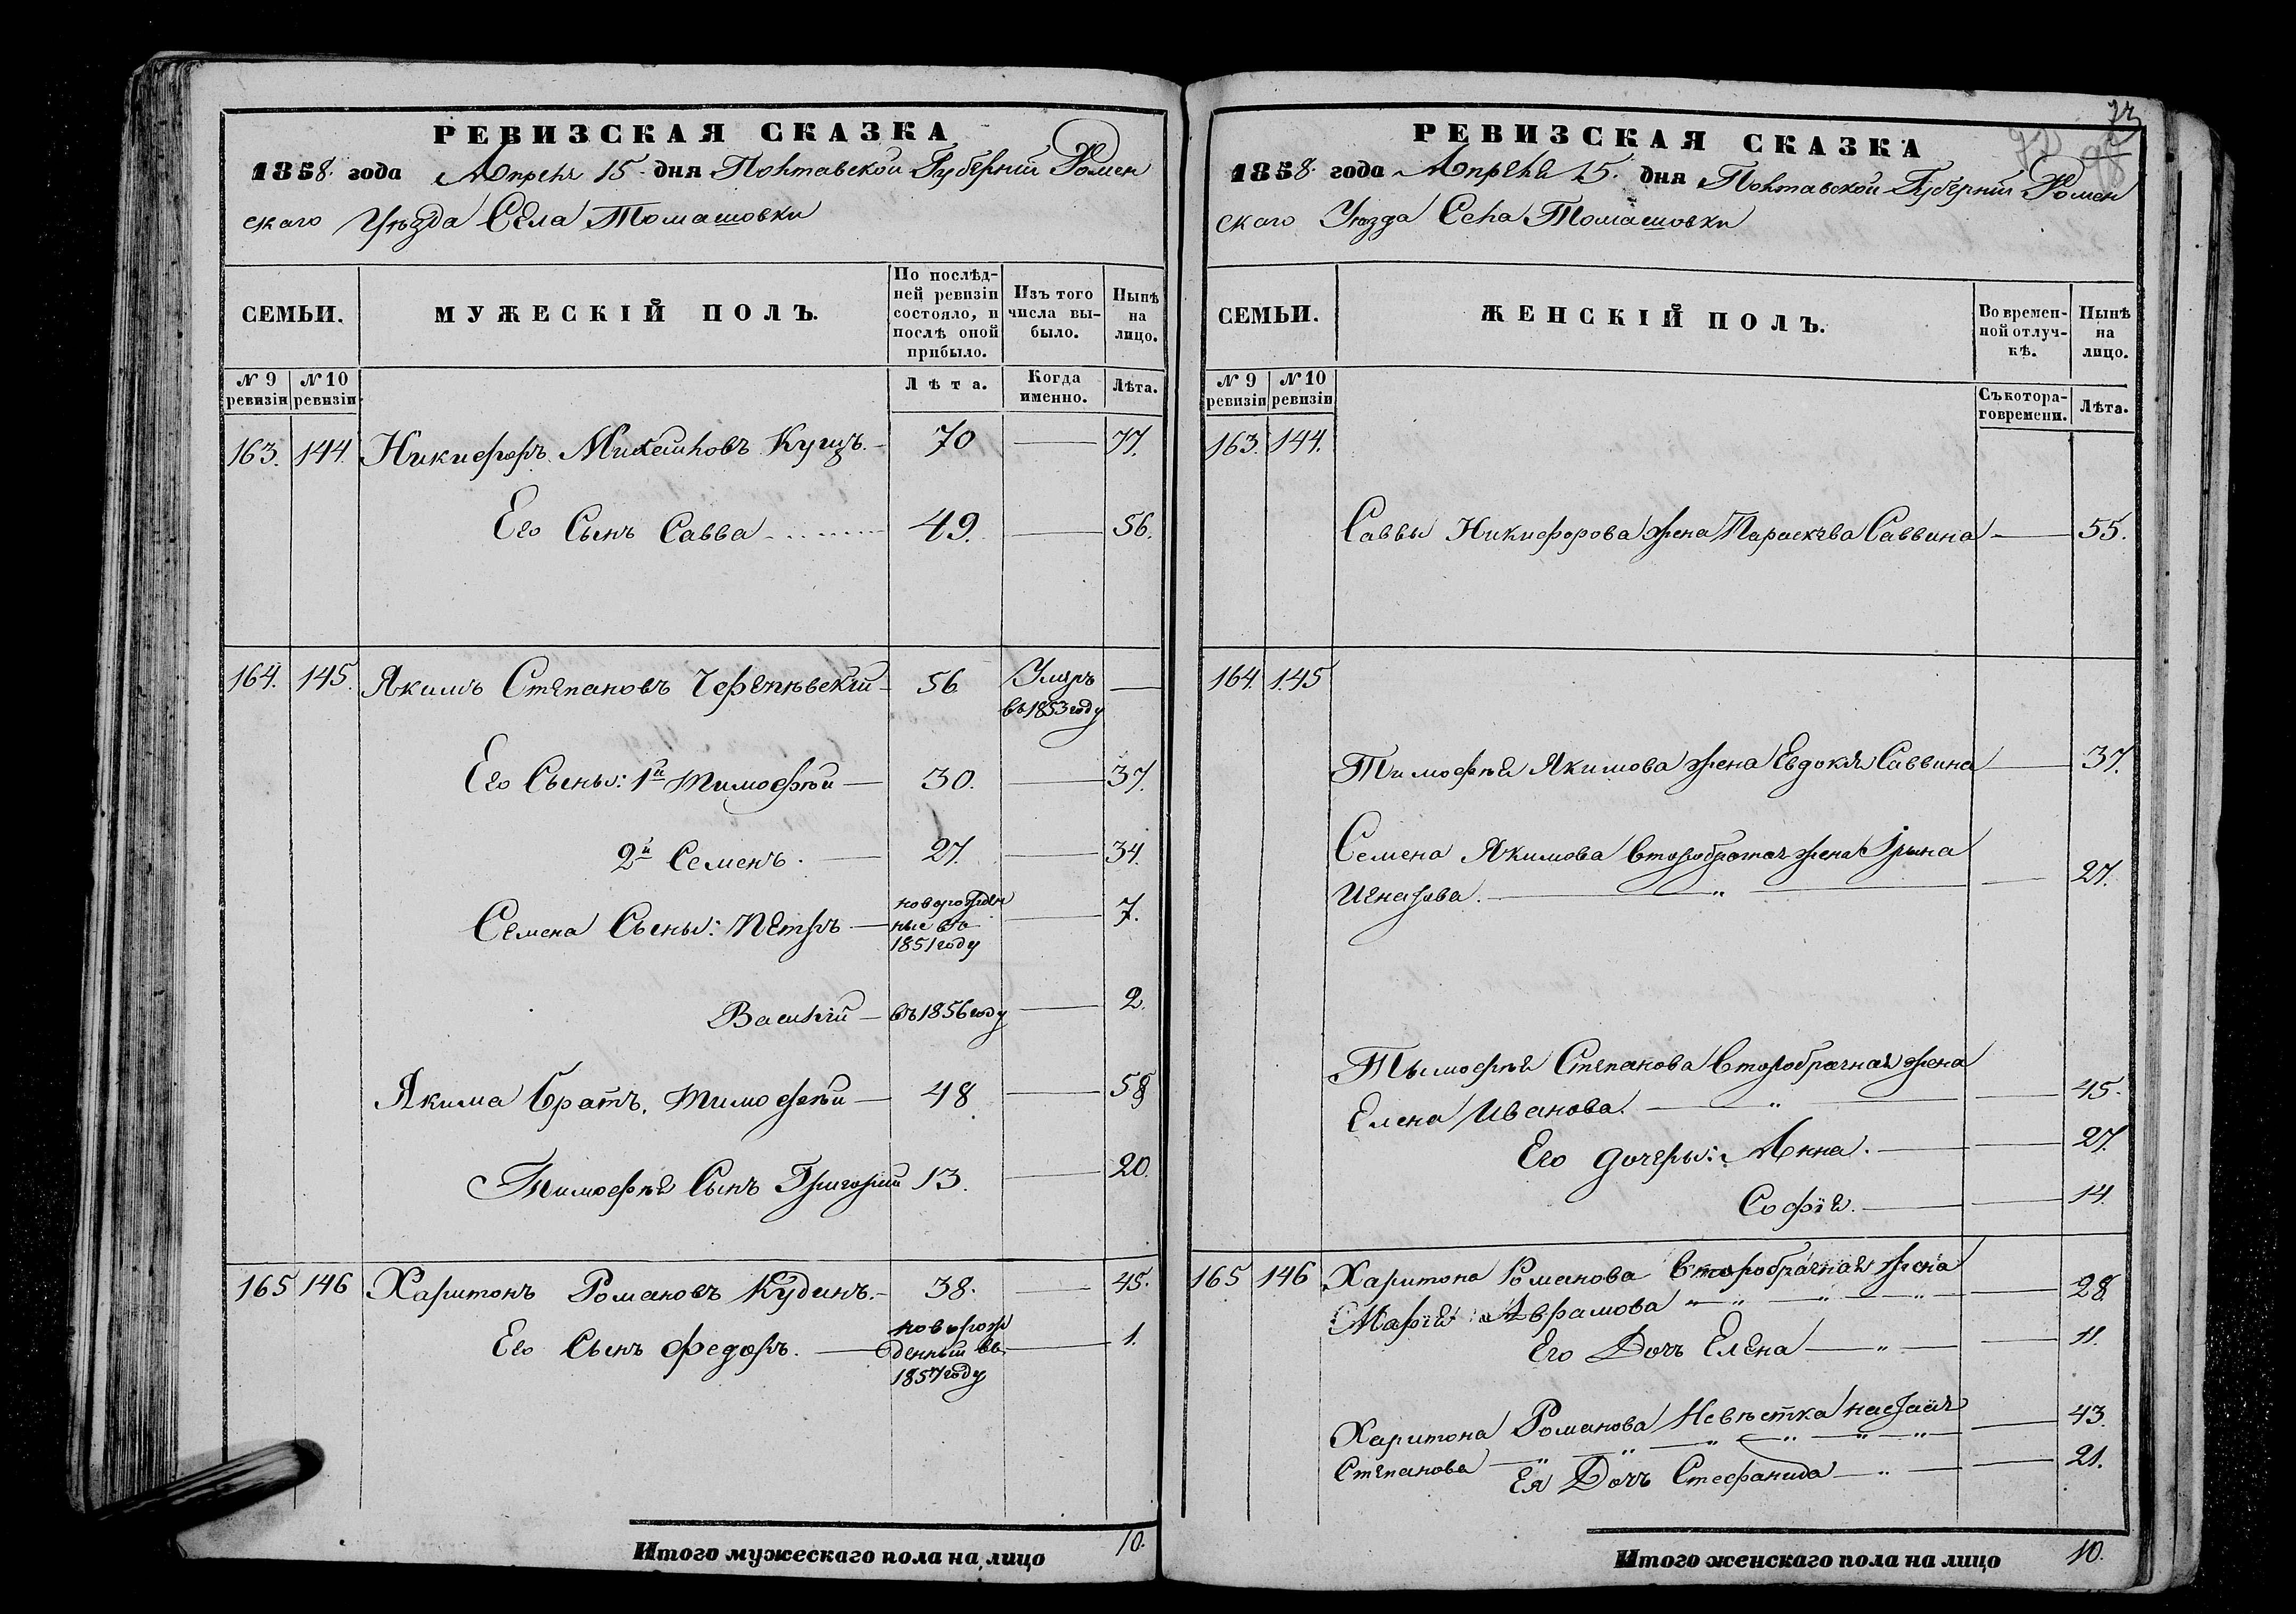 РЕВИЗСКАЯ СКАЗКА
1858. года Апреля 15 дня Полтавской Губерніи Ромен
скаго Уѣзда Села Томашовки
СЕМЬИ.
МУЖЕСКІЙ ПОЛЪ.
По послѣд-
ней ревизіи
состояло, и
послѣ оной
прибыло.
Изъ того
числа вы-
было.
Нынѣ
на
лицо.
№ 9 ревизіи
№ 10 ревизіи
Лѣта.
Когда
именно.
Лѣта.
163. 144. Никифоръ 70 — 77.
Его Сынъ Савва 49. — 56.
164. 145. Якимъ Степановъ 56 Умръ —
въ 1853 году
Его Сыны: 1й Тимофѣй — 30. — 37.
2й Семенъ. — 27. — 34.
Семена Сыны: Петръ — новорожден
ные въ
1851 году — 7.
Василій — въ 1856 году — 2.
Якима братъ, Тимофѣй — 48 —
Тимофѣя Сынъ Григорий 13. — 20.
165 146 Харитонъ Романовъ Кудинъ. — 38. — 45.
Его Сынъ Федоръ. — новорож
денный въ
1857 году — 1.
Итого мужескаго пола на лицо 10.
РЕВИЗСКАЯ СКАЗКА
1858. года Апреля 15. дня Полтавской Губерніи Ромен
скаго Уѣзда Села Томашовки
СЕМЬИ.
ЖЕНСКІЙ ПОЛЪ.
Во времен-
ной отлуч-
кѣ.
Нынѣ
на
лицо.
№ 9 ревизіи
№ 10 ревизіи
Съ котора-
го времени.
Лѣта.
163. 144.
Саввы Никифорова жена Параскева Саввина — 55.
164. 145
Тимофѣя Якимова жена Евдокія Саввина — 37.
Семена Якимова второбрачная жена Ірина
Игнатова. — 27.
Тымофѣя Степанова второбрачная жена
Елена Иванова. — 45.
Его дочеры: Анна. — 27.
Софія. — 14.
165 146 Харитона Романова второбрачная жена
Марія Аврамова — 28
Его Дочь Елена — 11.
Харитона Романова Невѣстка — 43.
Степанова
Ея Дочь Стефанида — 21.
Итого женскаго пола на лицо 10.